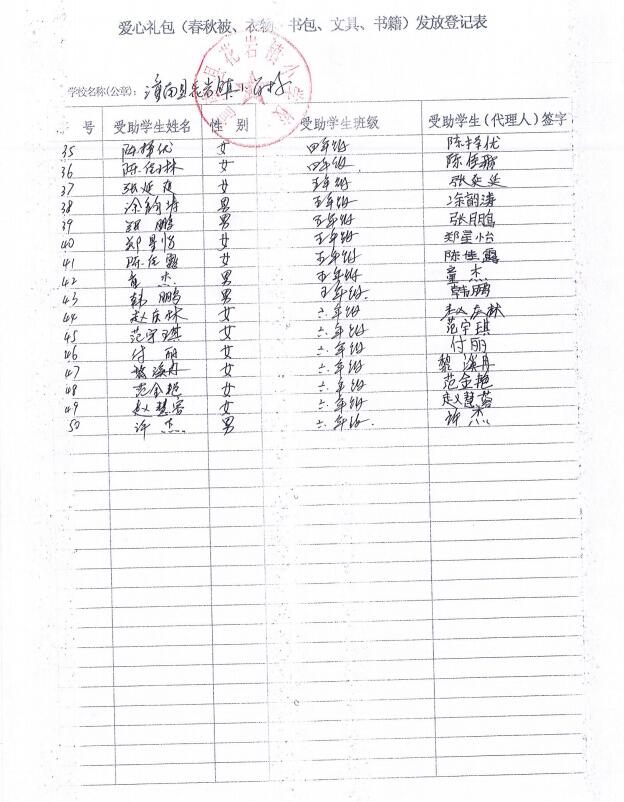 爱心礼包（春秋被、衣物、书包、文具、书籍）发放登记表
学校名称(公章): 潼南县花岩镇小学校
号 受助学生姓名 性 别 受助学生班级 受助学生（代理人）签字
35 女 四年级
36 女 四年级
37 张延廷 女 五年级 张延廷
38 男 五年级
39 张鹏 男 五年级 张鹏
40 郑星怡 女 五年级 郑星怡
41 陈佳露 女 五年级 陈佳露
42 童杰 男 五年级 童杰
43 韩鹏 男 五年级 韩鹏
44 赵庆林 女 六年级 赵庆林
45 范宇琪 女 六年级 范宇琪
46 付丽 女 六年级 付丽
47 女 六年级 黎溪丹
48 范金艳 女 六年级 范金艳
49 女 六年级 赵慧蓉
50 许杰 男 六年级 许杰